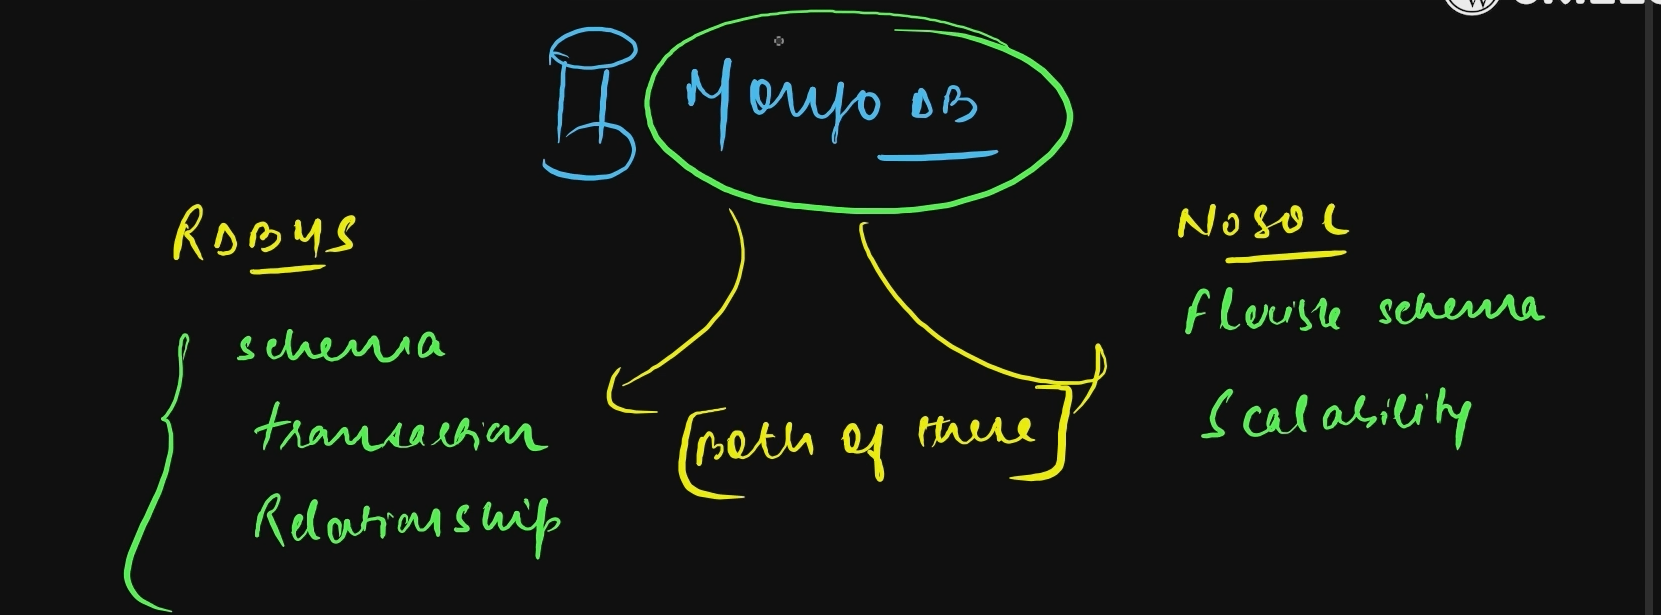 MongoDB
RDBMS
schema
transaction
Relationship
[Both of these]
NoSQL
flexible schema
Scalability